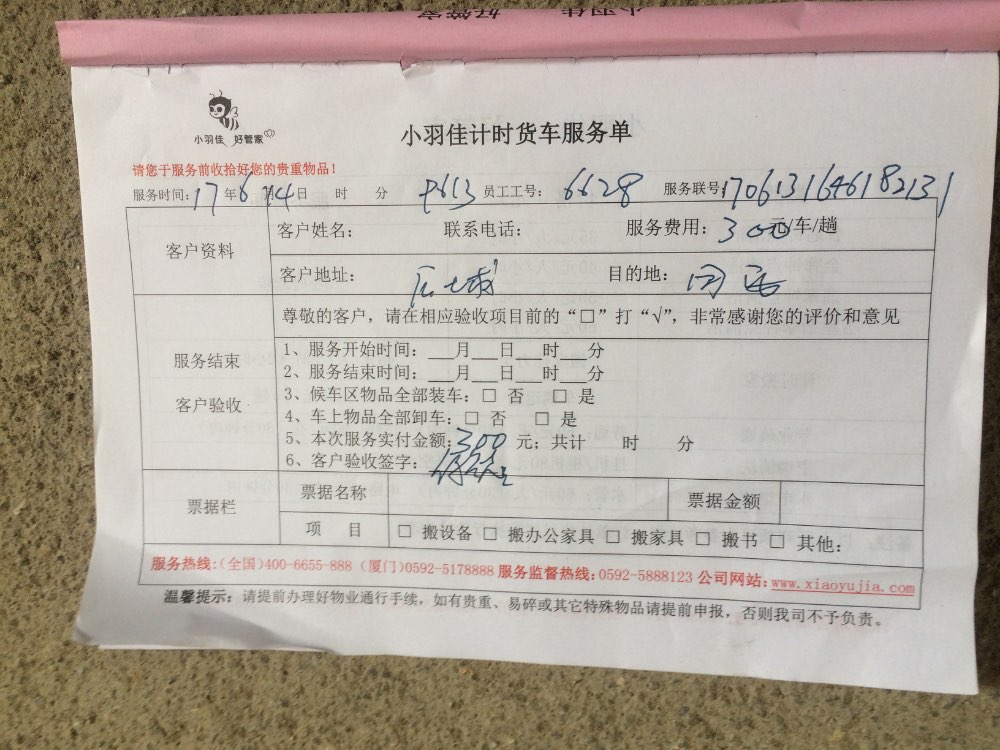 小羽佳 好管家
小羽佳 好管家
小羽佳计时货车服务单
请您于服务前收拾好您的贵重物品！
服务时间：17年6月14日 时 分 员工工号：6628 服务联号：
客户资料 客户姓名： 联系电话： 服务费用：300元/车/趟
客户地址： 目的地：
尊敬的客户，请在相应验收项目前的“□”打“√”，非常感谢您的评价和意见
服务结束
客户验收
1、服务开始时间：___月___日___时___分
2、服务结束时间：___月___日___时___分
3、候车区物品全部装车：□ 否 □ 是
4、车上物品全部卸车：□ 否 □ 是
5、本次服务实付金额：300 元；共计 时 分
6、客户验收签字：
票据栏 票据名称 票据金额
项 目 □ 搬设备 □ 搬办公家具 □ 搬家具 □ 搬书 □ 其他：
服务热线：(全国)400-6655-888 (厦门)0592-5178888 服务监督热线：0592-5888123 公司网站：www.xiaoyujia.com
温馨提示：请提前办理好物业通行手续，如有贵重、易碎或其它特殊物品请提前申报，否则我司不予负责。